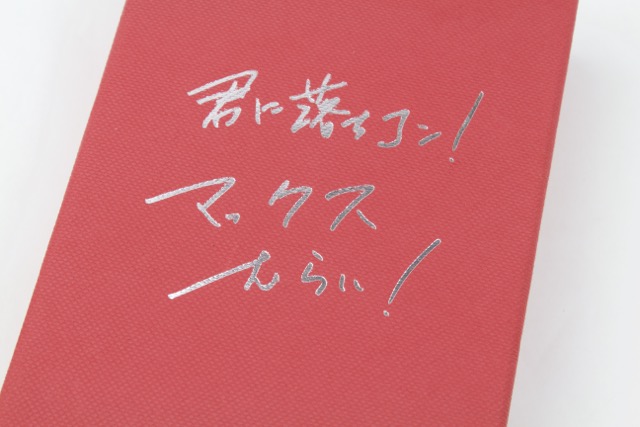 君に落ちコン!
マックス
むらい!